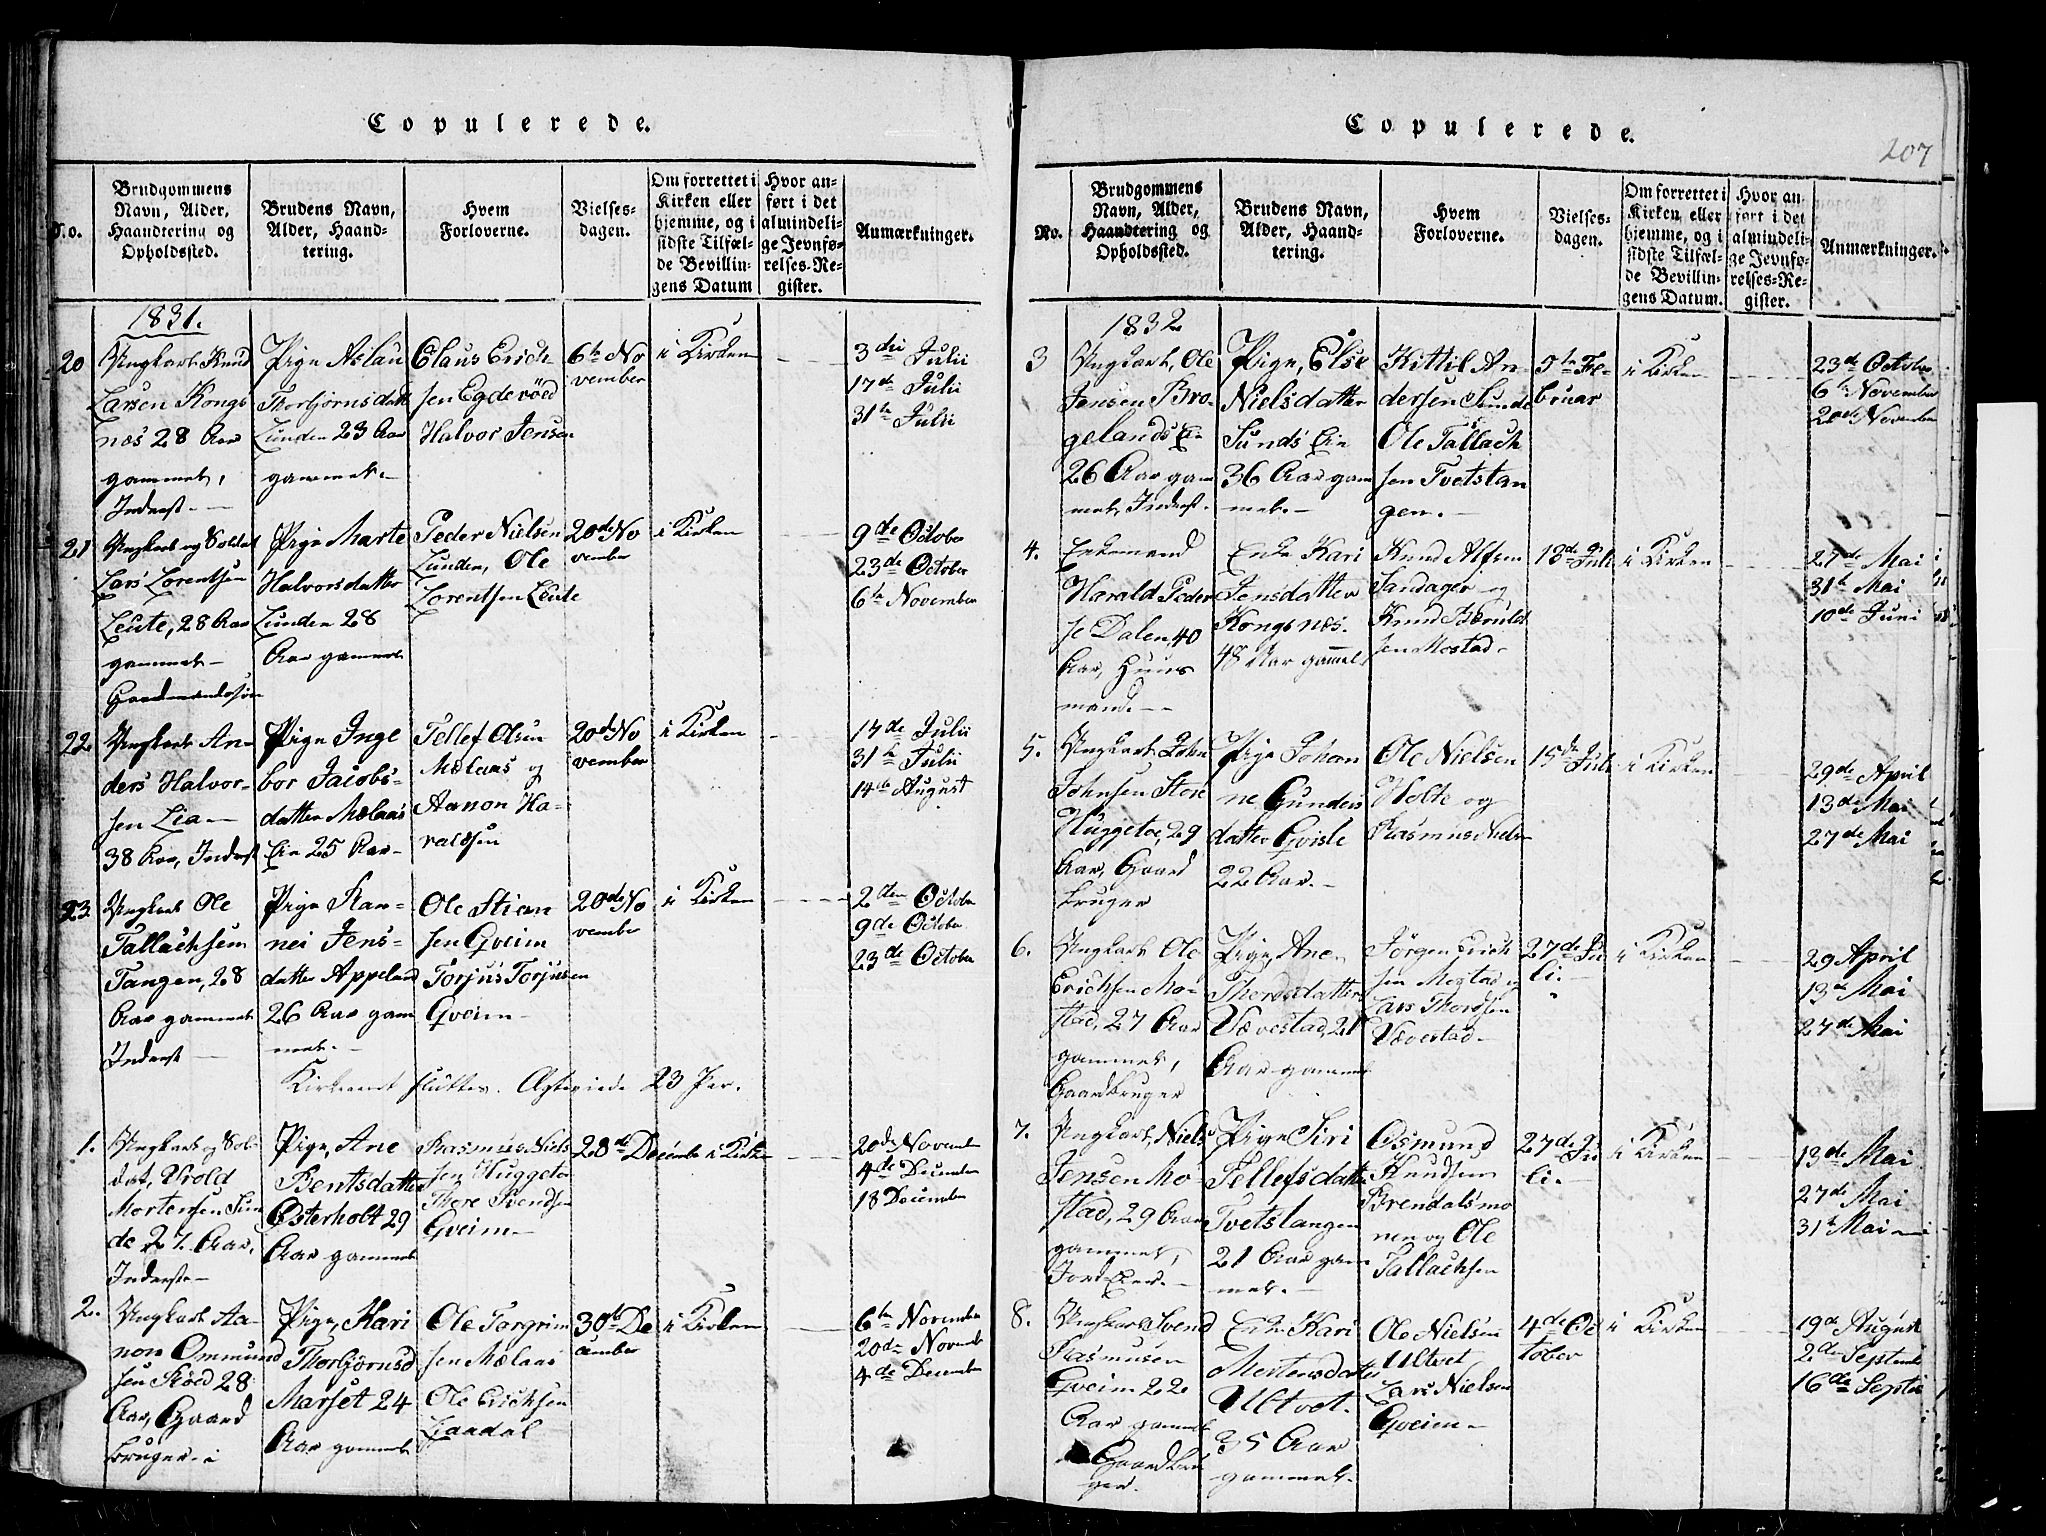 Copulerede.
No.
Brudgommens
Navn, Alder,
Haandtering og
Opholdssted.
Brudens Navn,
Alder, Haand-
tering.
Hvem
Forloverne.
Vielses-
dagen.
Om forrettet i
Kirken eller
hjemme, og i
sidste Tilfæl-
de Bevillin-
gens Datum
Hvor an-
ført i det
almindeli-
ge Jevnfø-
relses-Re-
gister.
Anmærkninger.
1831.
20
Ungkarl Knud
Larsen Kongs
næs 28 Aar
gammel,
Inderst
Pige Aslau
Thorbjørnsdatt
Lunden 23 Aar
gammel
Claus Erich-
sen Egdevöed
Halvor Jensen
6te No
vember
i Kirken
3die Julii
17de Julii
31te Julii
21
Ungkarl og Soldat
Lars Lorentsen
Leite, 28 Aar
gammel
Gaardmandssøn
Pige Marte
Halvorsdatter
Lunden 28
Aar gammel
Peder Nielsen
Lunden, Ole
Lorentsen Leite
20de No
vember
i Kirken
9de October
23de October
6te November
22
Ungkarl An-
ders Halvor-
sen Lia
38 Aar, Inderst
Pige Inge
bor Jacobs-
datter Mælaas
Eie 25 Aar
Tellef Olsen
Mælaas og
Aanon Ha-
raldsen
20de No
vember
i Kirken
17de Julii
31te Julii
14de August
23
Ungkarl Ole
Tallachsen
Tangen, 28
Aar gammel
Inderst
Pige Kar-
nei Jens-
datter Appeland
26 Aar gam
mel
Ole Stian
sen Gveim
Torjus Torjusen
Gveim
20de No
vember
i Kirken
2den October
9de October
23de October
Kirkeaaret sluttes. Ægteviede 23 Par.
1.
Ungkarl og Sol-
dat, Trold
Mortensen Sun
de 27 Aar,
Inderst
Pige, Ane
Bentsdatter
Østerholt 29
Aar gammel
Rasmus Niels
sen Huggeto
Thore Svendsen
Gveim
28de Decembr
i Kirken
20de Novemb
4de December
18 December
2.
Ungkarl Aa-
non Ommund
sen Röed 28
Aar, Gaard
bruger
Pige, Kari
Thorbjörnsd
Marset 24
Aar gammel
Ole Targrim
sen Mælaas
Ole Erichsen
Laadal
30te De
cember
i Kirken
6te November
20de Novemb
4de December
Copulerede.
207
No.
Brudgommens
Navn, Alder,
Haandtering og
Opholdssted.
Brudens Navn,
Alder, Haand-
tering.
Hvem
Forloverne.
Vielses-
dagen.
Om forrettet i
Kirken eller
hjemme, og i
sidste Tilfæl-
de Bevillin-
gens Datum.
Hvor an
ført i det
almindeli-
ge Jevnfø-
relses-Re-
gister.
Anmærkninger.
1832
3
Ungkarl, Ole
Jensen Bro-
gelands Eie
26 Aar gam
mel, Inderst.
Pige, Else
Nielsdatter
Sunds Eie
36 Aar gam
mel.
Kittil An-
dersen Sunde
Ole Tallach
sen Tvetstan
gen.
5te Fe-
bruar
i Kirken
23de October
6te November
20de November
4.
Enkemand
Harald Peder
se Dalen, 40
Aar, Huus
mand.
Enke Kari
Jensdatter
Kongsnæs.
48 Aar gammel
Knud Alfsen
Sandager og
Knud Beruld
sen Mostad
13de Juli
i Kirken
27de Mai
31te Mai
10de Juni
5.
Ungkarl, John
Johnsen Store
Huggeto, 29
Aar, Gaard
bruger
Pige Johan
ne Gunders
datter Gvisle
22 Aar.
Ole Nielsen
Holte og
Rasmus Nielsen
15de Juli
i Kirken
29de April
13de Mai
27de Mai
6.
Ungkarl Ole
Erichsen Mo-
stad, 27 Aar
gammel,
Gaardbruger
Pige, Ane
Thordsdatter
Vævestad, 21
Aar gammel
Jörgen Erich
sen Mostad og
Lars Thordsen
Vævestad
27de Ju
li.
i Kirken
29 April
13de Mai
27de Mai
7.
Ungkarl, Niels
Jensen Mo-
stad, 29 Aar
gammel,
Jord Eier.
Pige Siri
Tellefsdatter
Tvetstangen
21 Aar gam
mel.
Osmund
Knudsen
Brendalsmo
nen og Ole
Tallachsen
27de Ju
li.
i Kirken
13de Mai
27de Mai
31te Mai
8.
Ungkarl Svend
Rasmusen
Gveim 22
Aar gammel
Gaardbru
ger.
Enke Kari
Mortensdatter
Ultvet.
35 Aar
gammel.
Ole Nielsen
Ultvet
Lars Nielsen
Gveim
4de Oc
tober
i Kirken
19de August
2de Septemb
16de Septbr